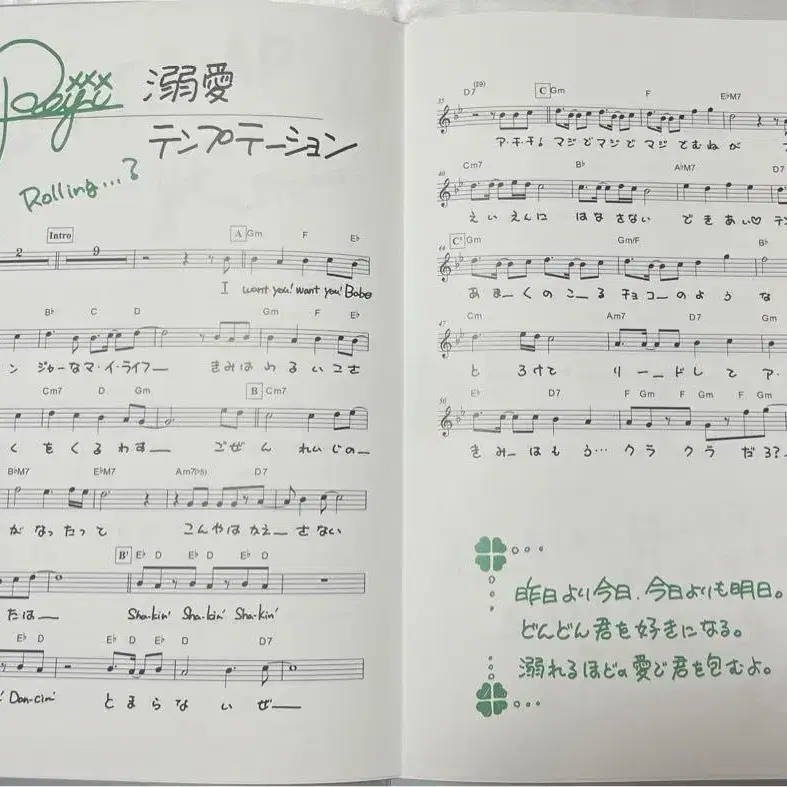 溺愛
テンプテーション
Rolling...?
Intro
2 9
A Gm F E♭
I want you! want you! Babe
B♭ C D Gm F E♭
ン ジャーなマ・イ・ライフー きみはわるいこさ
Cm7 D Gm B Cm7
く をくるわすー ごぜん れいじのー
B♭M7 E♭M7 Am7(♭5) D7
がなったって こんやはかえーさない
B' E♭ D E♭ D E♭ D
たはー Sha-kin' Sha-kin' Sha-kin'
E♭ D E♭ D E♭ D D7
Dan-cin' とまらないぜー
35 D7(♭9) C Gm F E♭M7
ア・チ・チ! マジでマジで マジ でむねが
40 Cm7 B♭ A♭M7 D7
えいえんに はなさない できあい♡ テン
44 C' Gm Gm/F B♭
あまーくのこーる チョコーのような
47 Cm Am7 D7 Gm
とろけて リーードしてア・
50 E♭ D7 F Gm F Gm F Gm
きみーはもう… クラクラだろ?ー
昨日より今日、今日よりも明日。
どんどん君を好きになる。
溺れるほどの愛で君を包むよ。